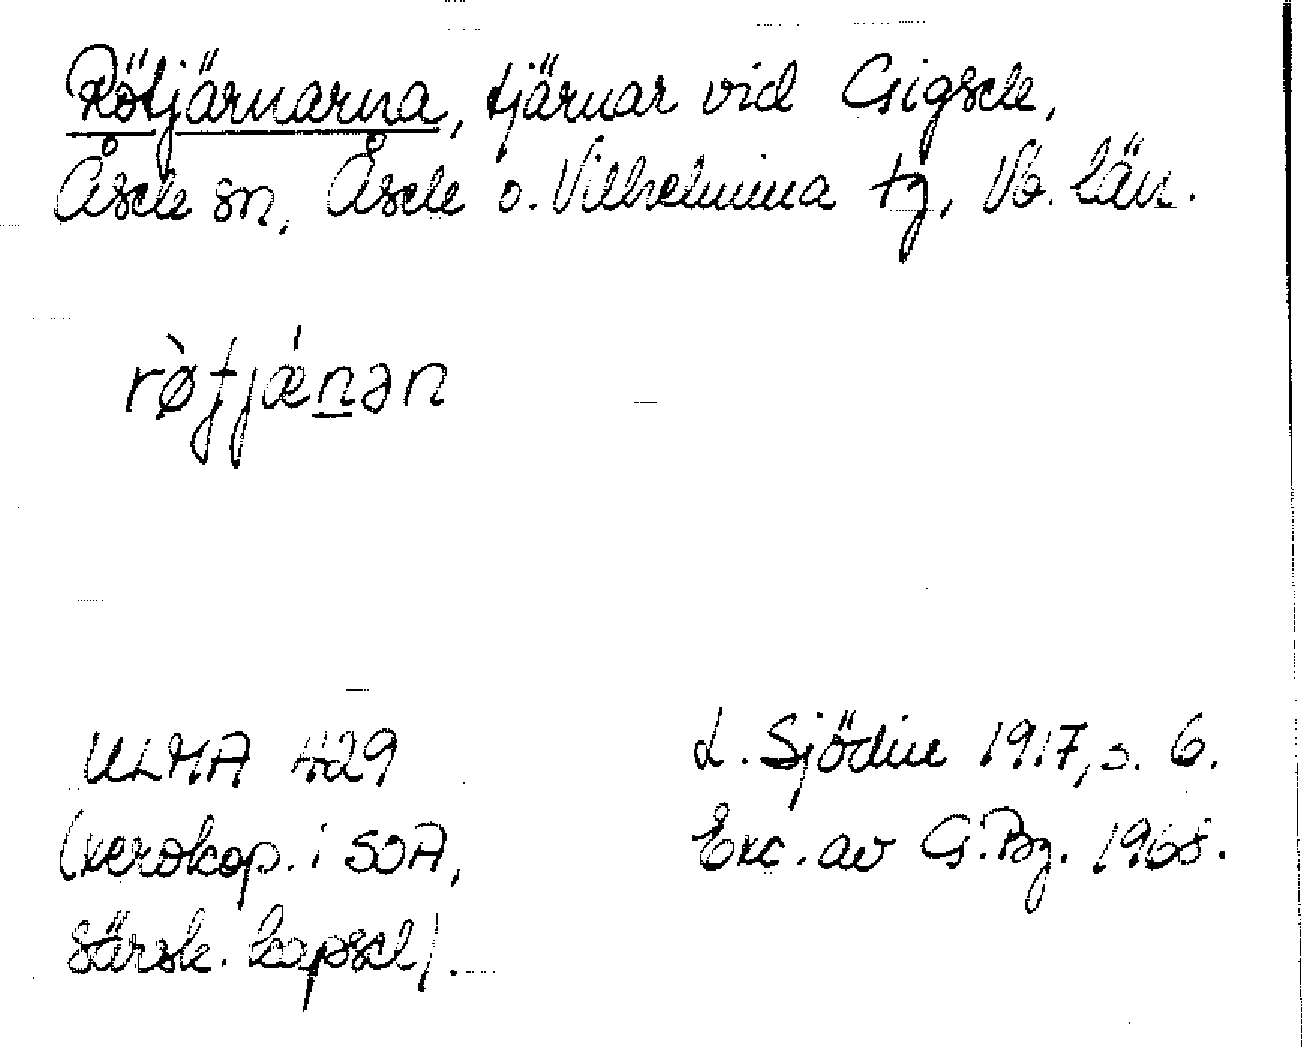 Rötjärnarna, tjärnar vid Gigsele,
Åsele sn, Åsele o. Vilhelmina tg, Vb. län.
rø̀tjǽnən
ULMA 429
L. Sjödin 1917, s. 6.
(xerokop. i SOA,
Exc. av G. Bg. 1968.
särsk. kapsel).